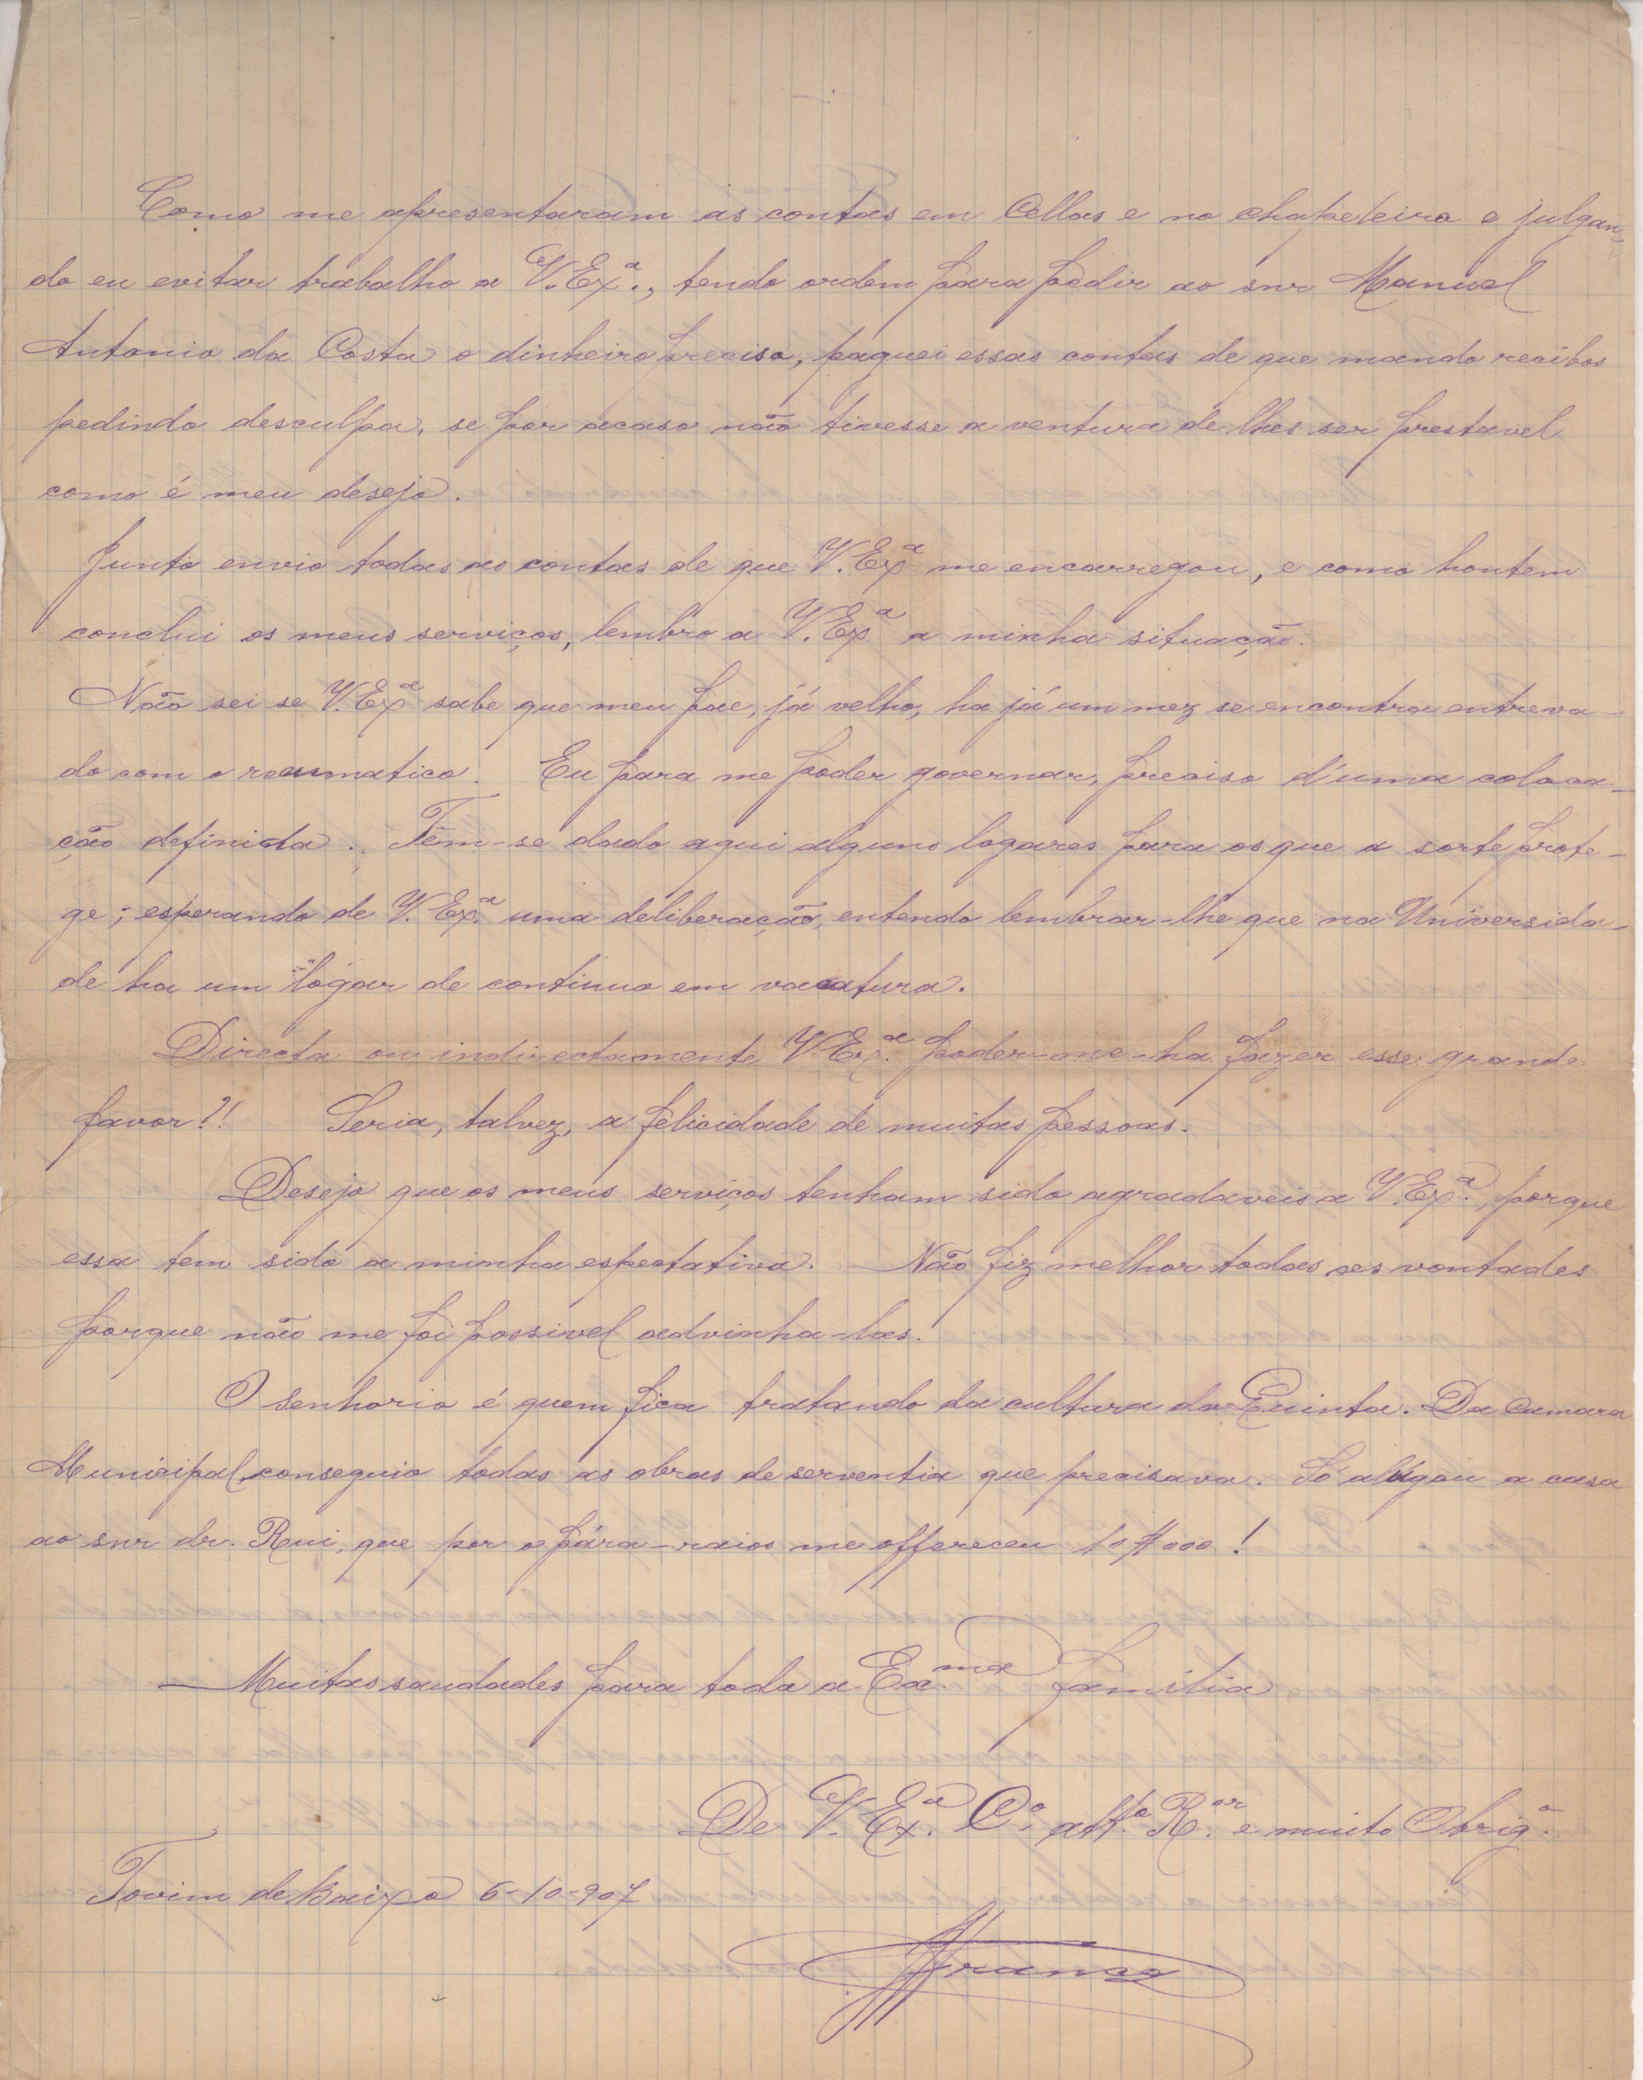 Como me apresentaram as contas em Cellas e no chapeleiro e julgan-
do eu evitar trabalho a V. Exª., tendo ordem para pedir ao snr Manuel
Antonio da Costa o dinheiro preciso, paguei essas contas de que mando recibos
pedindo desculpa, se por acaso não tivesse a ventura de lhes ser prestavel
como é meu desejo.
Junto envio todas as contas de que V. Exª me encarregou, e como hontem
conclui os meus serviços, lembro a V. Exª a minha situação.
Não sei se V. Exª sabe que meu pae, já velho, ha já um mez se encontra entreva-
do com o reumatico. Eu para me poder governar, preciso d'uma coloca-
ção definida. Têm-se dado aqui alguns logares para os que a sorte prote-
ge; esperando de V. Exª. uma deliberação, entendo lembrar-lhe que na Universida-
de ha um logar de continuo em vacatura.
Directa ou indirectamente V. Exª. poder-me-ha fazer esse grande
favor?! Seria, talvez, a felicidade de muitas pessoas.
Desejo que os meus serviços tenham sido agradaveis a V. Exª., porque
essa tem sido a minha espectativa. Não fiz melhor todas as vontades
porque não me foi possivel advinha-las.
O senhorio é quem fica tratando da cultura da Quinta. Da Camara
Municipal conseguio todas as obras de serventia que precisava. Só alugou a casa
ao snr dr. Rui, que por o pára-raios me offereceu 10$000!
Muitas saudades para toda a Exma Familia
De V. Exª. C.º att.º R.or e muito Obrigº.
Tovim de Baixo 6-10-907